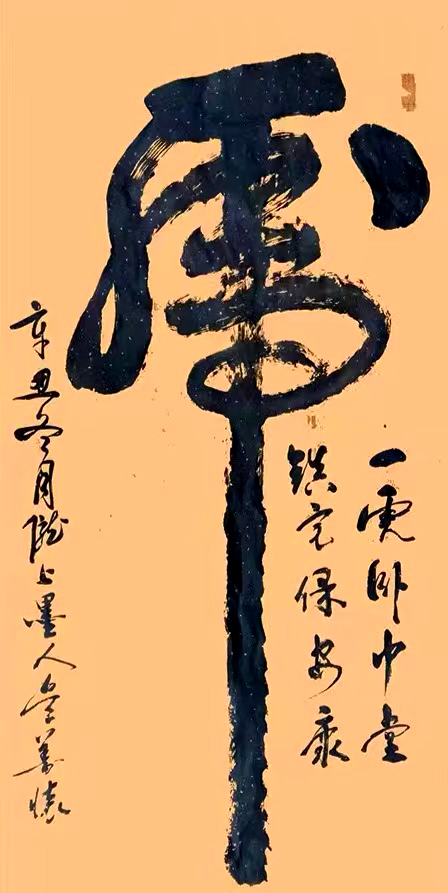 虎
一虎卧中堂
镇宅保安康
辛丑冬月陇上墨人